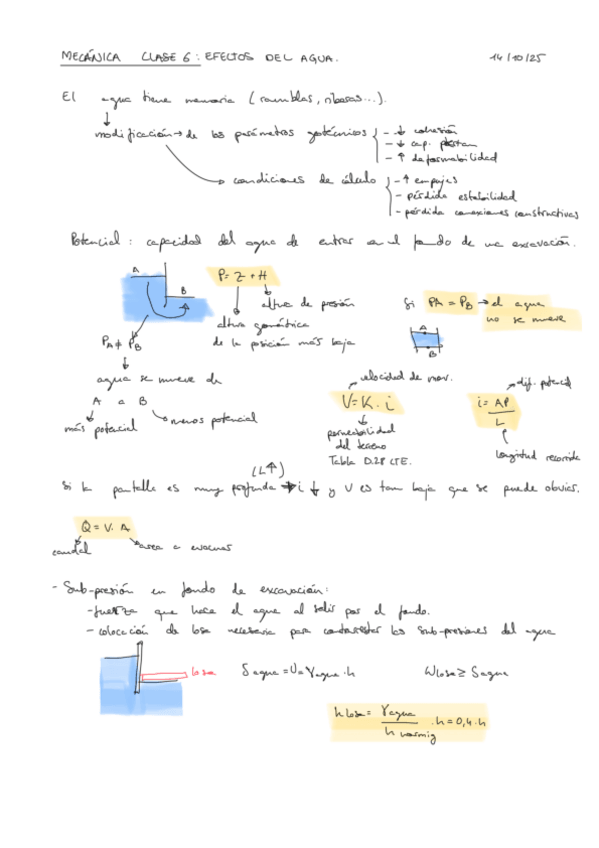 MECÁNICA CLASE 6: EFECTOS DEL AGUA. 14/10/25
El agua tiene memoria (ramblas, riberas...).
modificación → de los parámetros geotécnicos - ↓ cohesión
- ↓ cap. portan
- ↑ deformabilidad
→ condiciones de cálculo - ↑ empujes
- pérdida estabilidad
- pérdida conexiones constructivas
Potencial: capacidad del agua de entrar en el fondo de una excavación.
A B
P = Z + H
altura de presión
altura geométrica de la posición más baja
Si PA = PB → el agua no se mueve
A
B
PA ≠ PB
agua se mueve de
A a B
más potencial menos potencial
velocidad de mov.
V = K · i
permeabilidad del terreno
Tabla D.28 CTE.
dif. potencial
i = ΔP / L
longitud recorrida
(L↑)
Si la pantalla es muy profunda → i ↓ y V es tan baja que se puede obviar.
Q = V. A
caudal area a evacuar
- Sub-presión en fondo de excavación:
- fuerza que hace el agua al salir por el fondo.
- colocación de losa necesaria para contrarrestar las sub-presiones del agua
losa
S agua = U = γ agua · h W losa ≥ S agua
h losa = γ agua / h hormig · h = 0,4 · h